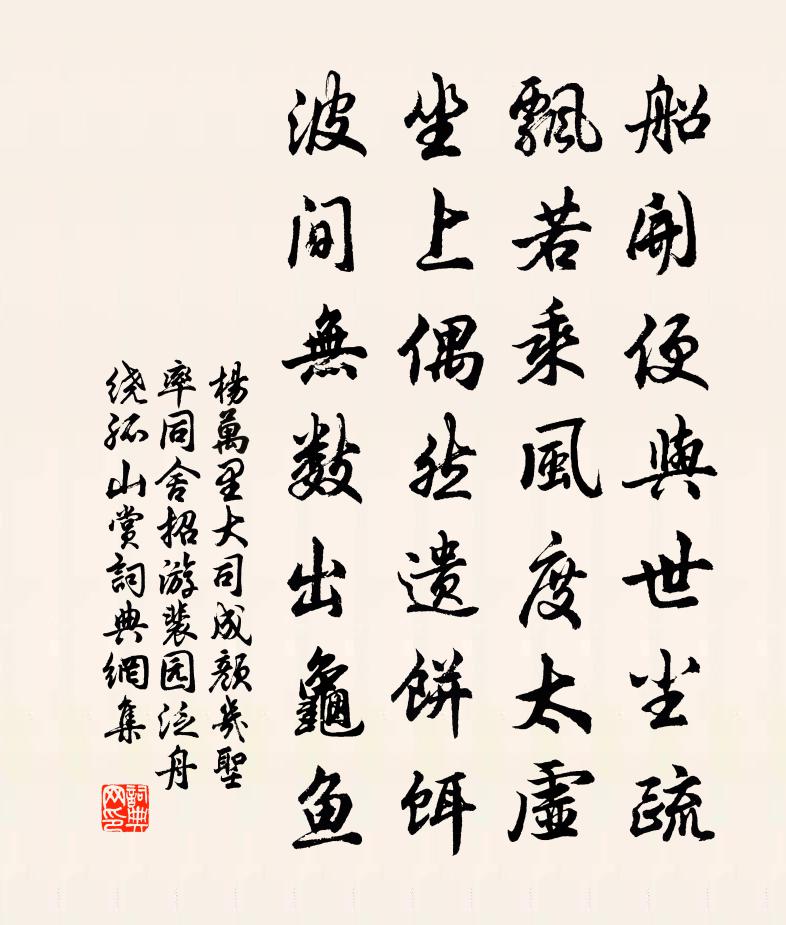 船開便與世尘疏
飄若乘風度太虛
坐上偶然遺餅餌
波间無数出龜鱼
楊萬里大司成颜幾聖
率同舍招游裴园泛舟
绕孤山赏詞典網集
詞典网印